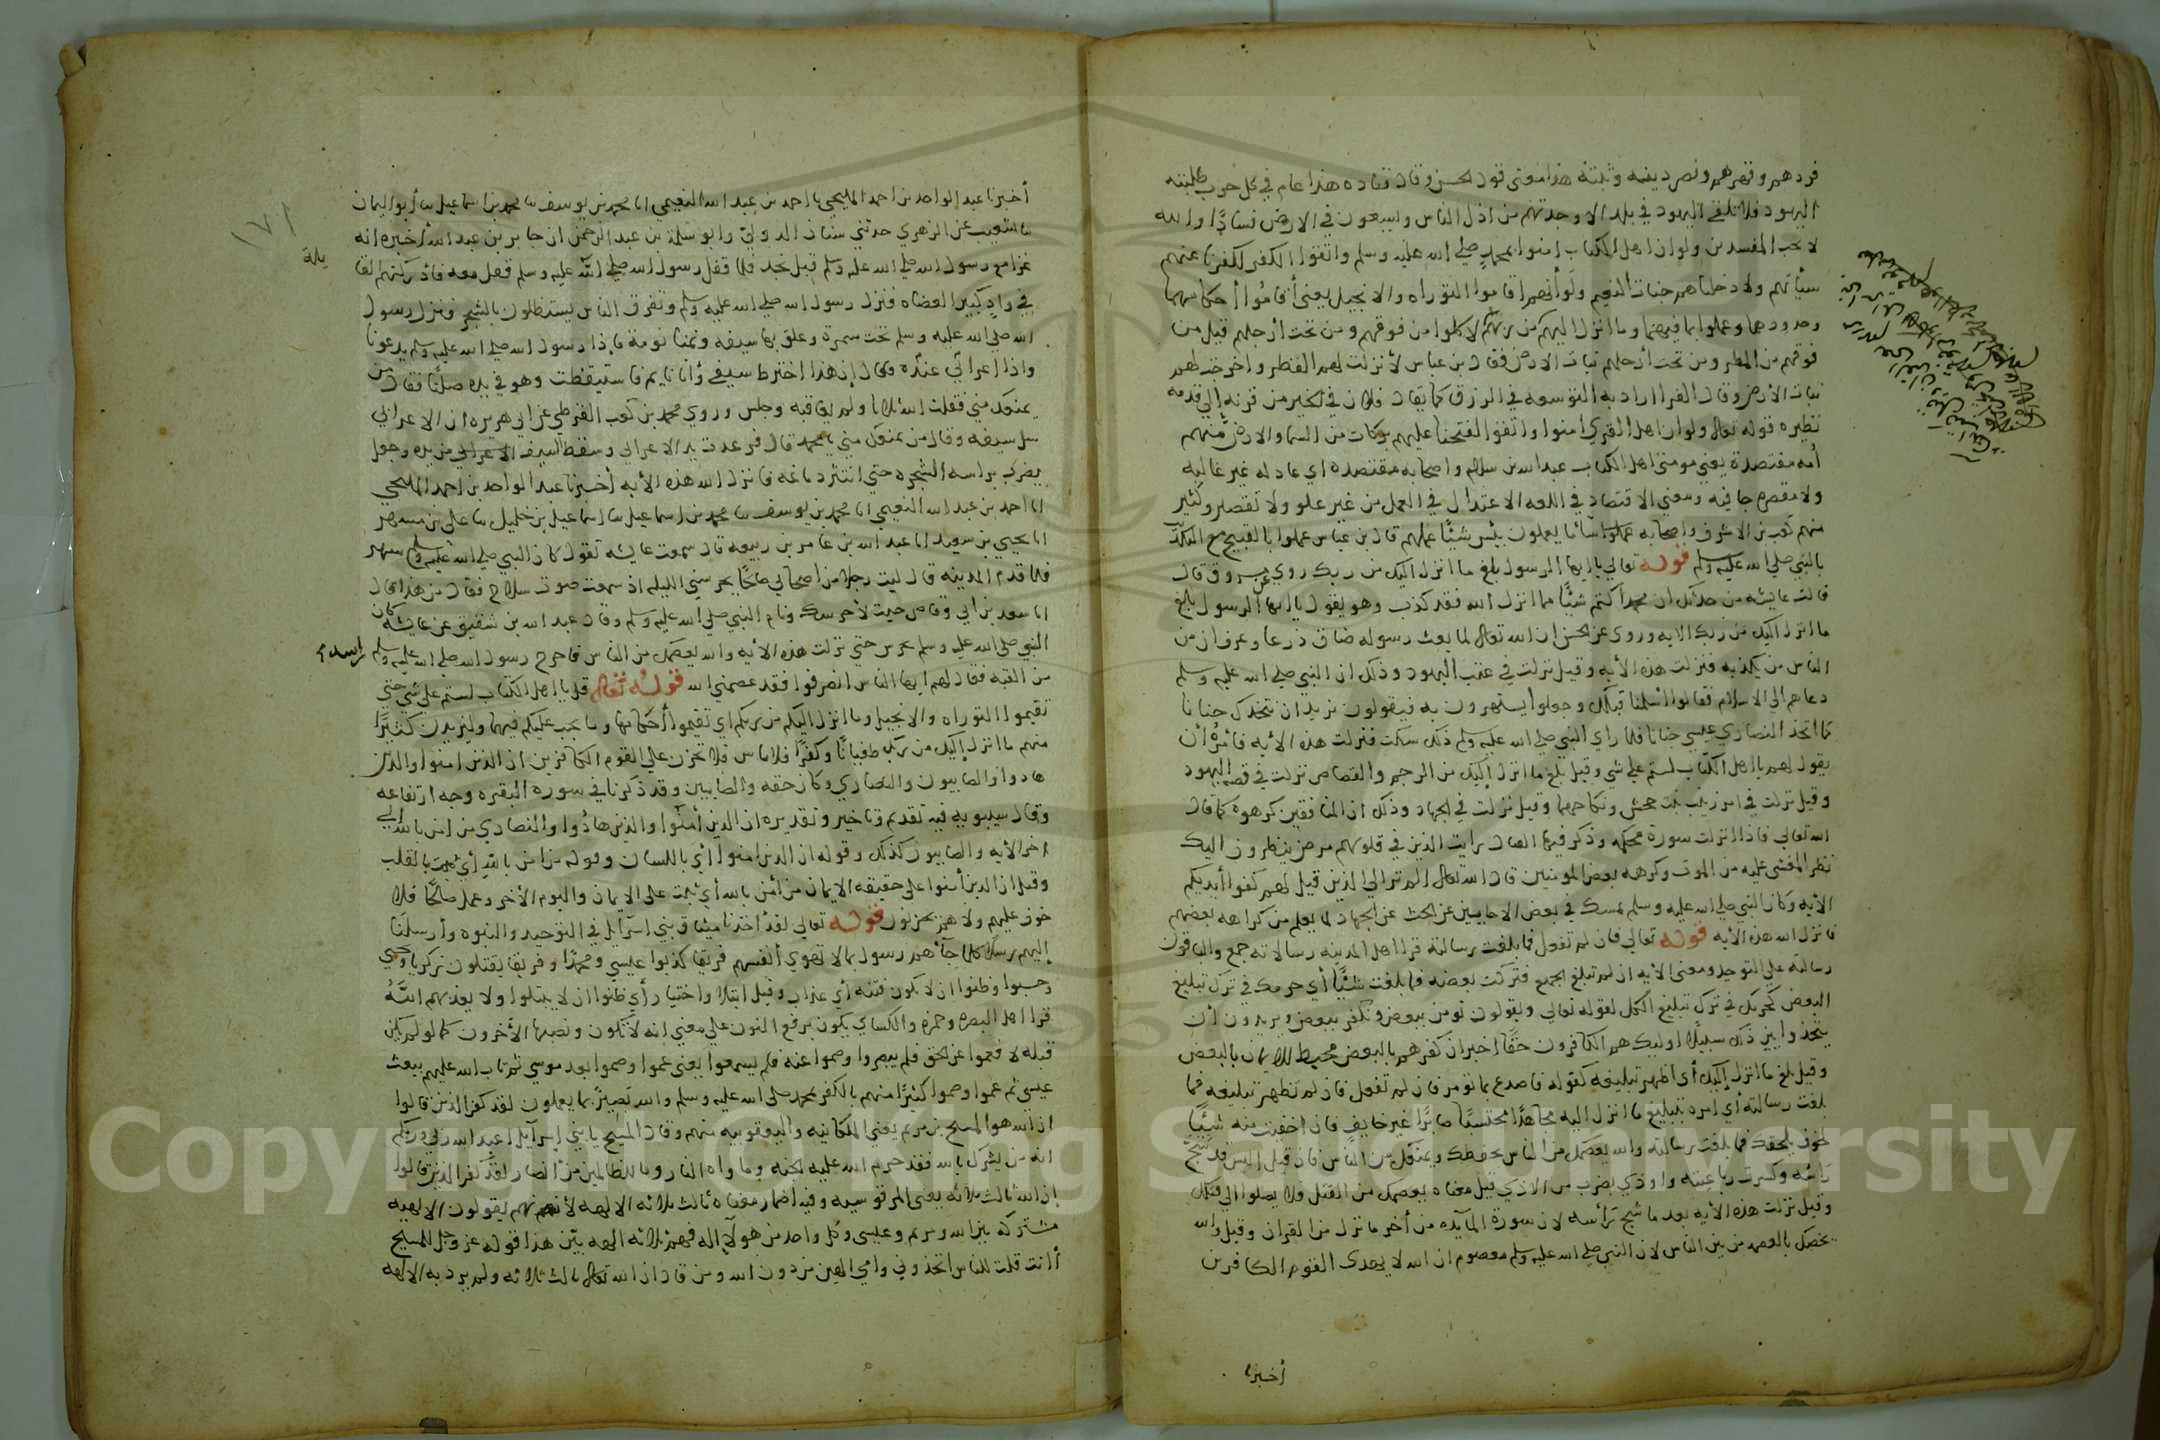 فردهم وقهرهم ونصر دينه ونبيه هذا معنى قول الحسن وقال قتاده هذا عام في كل حرب طلبته
اليهود فلا تلقى اليهود في بلد الا وجدتهم من اذل الناس ويسعون في الارض فسادًا والله
لا يحب المفسدين ولو ان اهل الكتاب امنوا بمحمد صلى الله عليه وسلم واتقوا الكفر لكفرنا عنهم
سيأتهم ولادخلناهم جنات النعيم ولو أنهم اقاموا التوراه والانجيل يعني أقامُوا أحكامهما
وحدودهما وعملوا بما فيهما وما انزل اليهم من ربهم لاكلوا من فوقهم ومن تحت أرجلهم قيل من
فوقهم من المطر ومن تحت أرجلهم نبات الارض وقال بن عباس لأنزلت لهم القطر واخرجت لهم
نبات الأرض وقال الفرا اراد به التوسعه في الرزق كما يقال فلان في الخير من قرنه إلى قدمه
نظيره قوله تعالى ولو ان اهل القرى امنوا واتقوا لفتحنا عليهم بركات من السما والارض منهم
أمه مقتصدة يعني مومني اهل الكتاب عبد الله بن سلام واصحابه مقتصدة اي عادله غير غاليه
ولا مقصره جافيه ومعنى الاقتصاد في اللغه الاعتدال في العمل من غير علو ولا تقصير وكثير
منهم كعب بن الاشرف واصحابه سا ما يعملون بئس شيئًا عملهم قال بن عباس عملوا بالقبيح مع التكذيب
بالنبي صلى الله عليه وسلم قوله تعالى يا ايها الرسول بلغ ما انزل اليك من ربك روي عن مسروق قال
قالت عايشه من حدثك ان محمدًا كتم شيئًا مما انزل الله فقد كذب وهو يقول يا ايها الرسول بلغ
ما انزل اليك من ربك الايه وروي عن الحسن ان الله تعالى لما بعث رسوله ضاق ذرعا وعرف ان من
الناس من يكذبه فنزلت هذه الأيه وقيل نزلت في عتب اليهود وذلك ان النبي صلى الله عليه وسلم
دعاهم الى الاسلام فقالوا اسلمنا قبلك وجعلوا يستهزون به فيقولون تريد ان نتخذك حنانا
كما اتخذ النصاري عيسى حنانا فلما راي النبي صلى الله عليه وسلم ذلك سكت فنزلت هذه الأيه فامره أن
يقول لهم يا اهل الكتاب لستم على شي وقيل بلغ ما انزل إليك من الرجم والقصاص نزلت في قصه اليهود
وقيل نزلت في امر زينب بنت جحش ونكاحها وقيل نزلت في الجهاد وذلك ان المنافقين كرهوه كما قال
الله تعالى فاذا انزلت سورة محكمه وذكر فيها القتال رايت الذين في قلوبهم مرض ينظرون اليك
نظر المغشى عليه من الموت وكرهه بعض المومنين قال الله تعالى الم تر الى الذين قيل لهم كفوا أيديكم
الأيه وكان النبي صلى الله عليه وسلم يمسك في بعض الاحايين عن الحث على الجهاد لما يعلم من كراهه بعضهم
فانزل الله هذه الأيه قوله تعالى فان لم تفعل فما بلغت رسالته قرا اهل المدينه رسالاته جمع والباقون
رسالته على التوحيد ومعنى الأيه ان لم تبلغ الجميع فتركت بعضه فما بلغت شيئًا أي جرمك في ترك تبليغ
البعض كجرمك في ترك تبليغ الكل لقوله تعالى ويقولون نومن ببعض ونكفر ببعض ويريدون ان
يتخذوا بين ذلك سبيلا اوليك هم الكافرون حقًا اخبر ان كفرهم بالبعض محيط للايمان بالبعض
وقيل بلغ ما انزل إليك أي اظهر تبليغه كقوله فاصدع بما تومر فان لم تفعل فان لم تظهر تبليغه فما
بلغت رسالته أي امره بتبليغ ما انزل اليه مجاهدًا محتسبًا صابرًا غير خايف فان اخفيت منه شيئًا
لخوف يلحقك فما بلغت رسالته والله يعصمك من الناس يحفظك ويمنعك من الناس فان قيل اليس قد شج
رأسه وكسرت رباعيته واوذي بضرب من الاذي قيل معناه يعصمك من القتل فلا يصلوا الى قتلك
وقيل نزلت هذه الأيه بعد ما شج رأسه لان سورة المآيده من أخر ما نزل من القران وقيل والله
يخصك بالعصمه من بين الناس لان النبي صلى الله عليه وسلم معصوم ان الله لا يهدى القوم الكافرين
أخبرنا
١٧١
أخبرنا عبد الواحد بن احمد المليحي انا احمد بن عبد الله النعيمي انا محمد بن يوسف سا محمد بن اسماعيل سا أبو اليمان
سا شعيب عن الزهري حدثني سنان الدولي وابو سلمة بن عبد الرحمن ان جابر بن عبد الله أخبره انه
غزا مع رسول الله صلى الله عليه وسلم قبل نجد فلما قفل رسول الله صلى الله عليه وسلم قفل معه فادركتهم القا
يلة
في وادٍ كثير العضاه فنزل رسول الله صلى الله عليه وسلم وتفرق الناس يستظلون بالشجر فنزل رسول
الله صلى الله عليه وسلم تحت سمرة وعلق بها سيفه ونمنا نومة فاذا رسول الله صلى الله عليه وسلم يدعونا
واذا اعرابي عنده فقال إن هذا اخترط سيفي وأنا نايم فاستيقظت وهو في يده صلتًا فقال من
يمنعك مني فقلت الله ثلاثا ولم يعاقبه وجلس وروي محمد بن كعب القرظي عن ابي هريره ان الاعرابي
سل سيفه وقال من يمنعك مني يا محمد قال فرعدت يد الاعرابي وسقط السيف من يده وجعل
يضرب براسه الشجره حتى انتثر دماغه فانزل الله هذه الأيه أخبرنا عبد الواحد بن احمد المليحي
انا احمد بن عبد الله النعيمي انا محمد بن يوسف سا محمد بن اسماعيل سا اسماعيل بن خليل سا علي بن مسهر
انا يحيى بن سعيد انا عبد الله بن عامر بن ربيعه قال سمعت عايشه تقول كان النبي صلى الله عليه وسلم سهر
فلما قدم المدينه قال ليت رجلا من اصحابي صالحًا يحرسني الليله اذ سمعت صوت سلاح فقال من هذا قال
انا سعد بن ابي وقاص جيت لأحرسك ونام النبي صلى الله عليه وسلم وقال عبد الله بن شقيق عن عايشه كان
النبي صلى الله عليه وسلم يحرس حتى نزلت هذه الأيه والله يعصمك من الناس فاخرج رسول الله صلى الله عليه وسلم
راسه
من القبه فقال لهم ايها الناس انصرفوا فقد عصمني الله قوله تعالى قل يا اهل الكتاب لستم على شي حتي
تقيموا التوراه والانجيل وما انزل اليكم من ربكم اي تقيموا أحكامها وما يجب عليكم فيها وليزيدن كثيرًا
منهم ما انزل إليك من ربك طغيانًا وكفرًا فلا تاس فلا تحزن على القوم الكافرين ان الذين امنوا والذين
هادوا والصابيون والنصاري وكان حقه والصابيين وقد ذكرنا في سورة البقره وجه ارتفاعه
وقال سيبويه فيه تقديم وتاخير وتقديره ان الذين أمنوا والذين هادُوا والنصاري من امن بالله الى
اخر الأيه والصابيون كذلك وقوله ان الذين امنوا أي باللسان وقوله من امن باللهِ أي بالقلب
وقيل ان الذين أمنوا على حقيقه الايمان من أمن بالله أي ثبت على الايمان واليوم الأخر وعمل صالحًا فلا
خوف عليهم ولا هم يحزنون قوله تعالى لقد أخذنا ميثاق بني اسرآيل في التوحيد والنبوه وأرسلنا
إليهم رسلا كلما جآءهم رسول بما لا تهوي أنفسهم فريقا كذبوا عيسي ومحمدًا وفريقا يقتلون زكريا ويحيي
وحسبوا وظنوا ان لا تكون فتنه أي عذاب وقيل ابتلا واختبار أي ظنوا ان لا يبتلوا ولا يعذبهم اللهُ
قرا اهل البصره وحمزه والكساي يكون برفع النون على معنى انه لا تكون ونصبها الأخرون كما لو لم يكن
قبله لا فعموا عن الحق فلم يبصروا وصموا عنه فلم يسمعوا يعني عموا وصموا بعد موسي ثم تاب الله عليهم ببعث
عيسي ثم عموا وصموا كثيرًا منهم بالكفر بمحمد صلى الله عليه وسلم والله بصيرٌ بما يعملون لقد كفر الذين قالوا
ان الله هو المسيح بن مريم يعني الملكانيه واليعقوبيه منهم وقال المسيح يا بني إسرآيل اعبدوا الله ربي وربكم
انه من يشرك بالله فقد حرم الله عليه الجنه وما واه النار وما للظالمين من أنصار لقد كفر الذين قالوا
إن الله ثالث ثلاثه يعني المرقوسيه وفيه اضمار معناه ثالث ثلاثه الالهه لأنهم يقولون الالهيه
مشتركه بين الله ومريم وعيسى وكل واحد من هولآء إله فهم ثلاثه الهه يبين هذا قوله عز وجل للمسيح
أانت قلت للناس اتخذوني وامي الهين من دون الله ومن قال ان الله تعالى ثالث ثلاثه ولم يرد به الالهه
Copyright © King Saud University